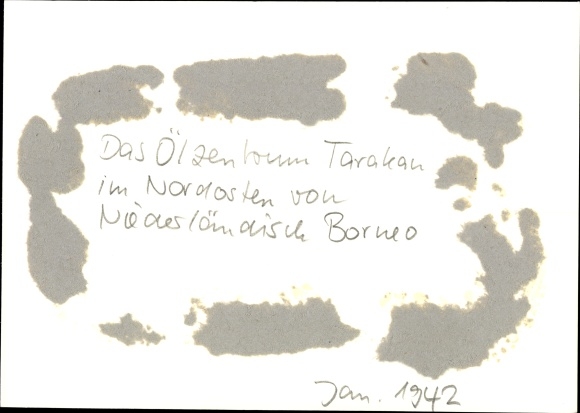 Das Ölzentrum Tarakan
im Nordosten von
Niederländisch Borneo
Jan. 1942